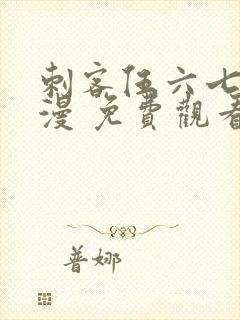 刺客伍六七
漫 免費觀看
普娜